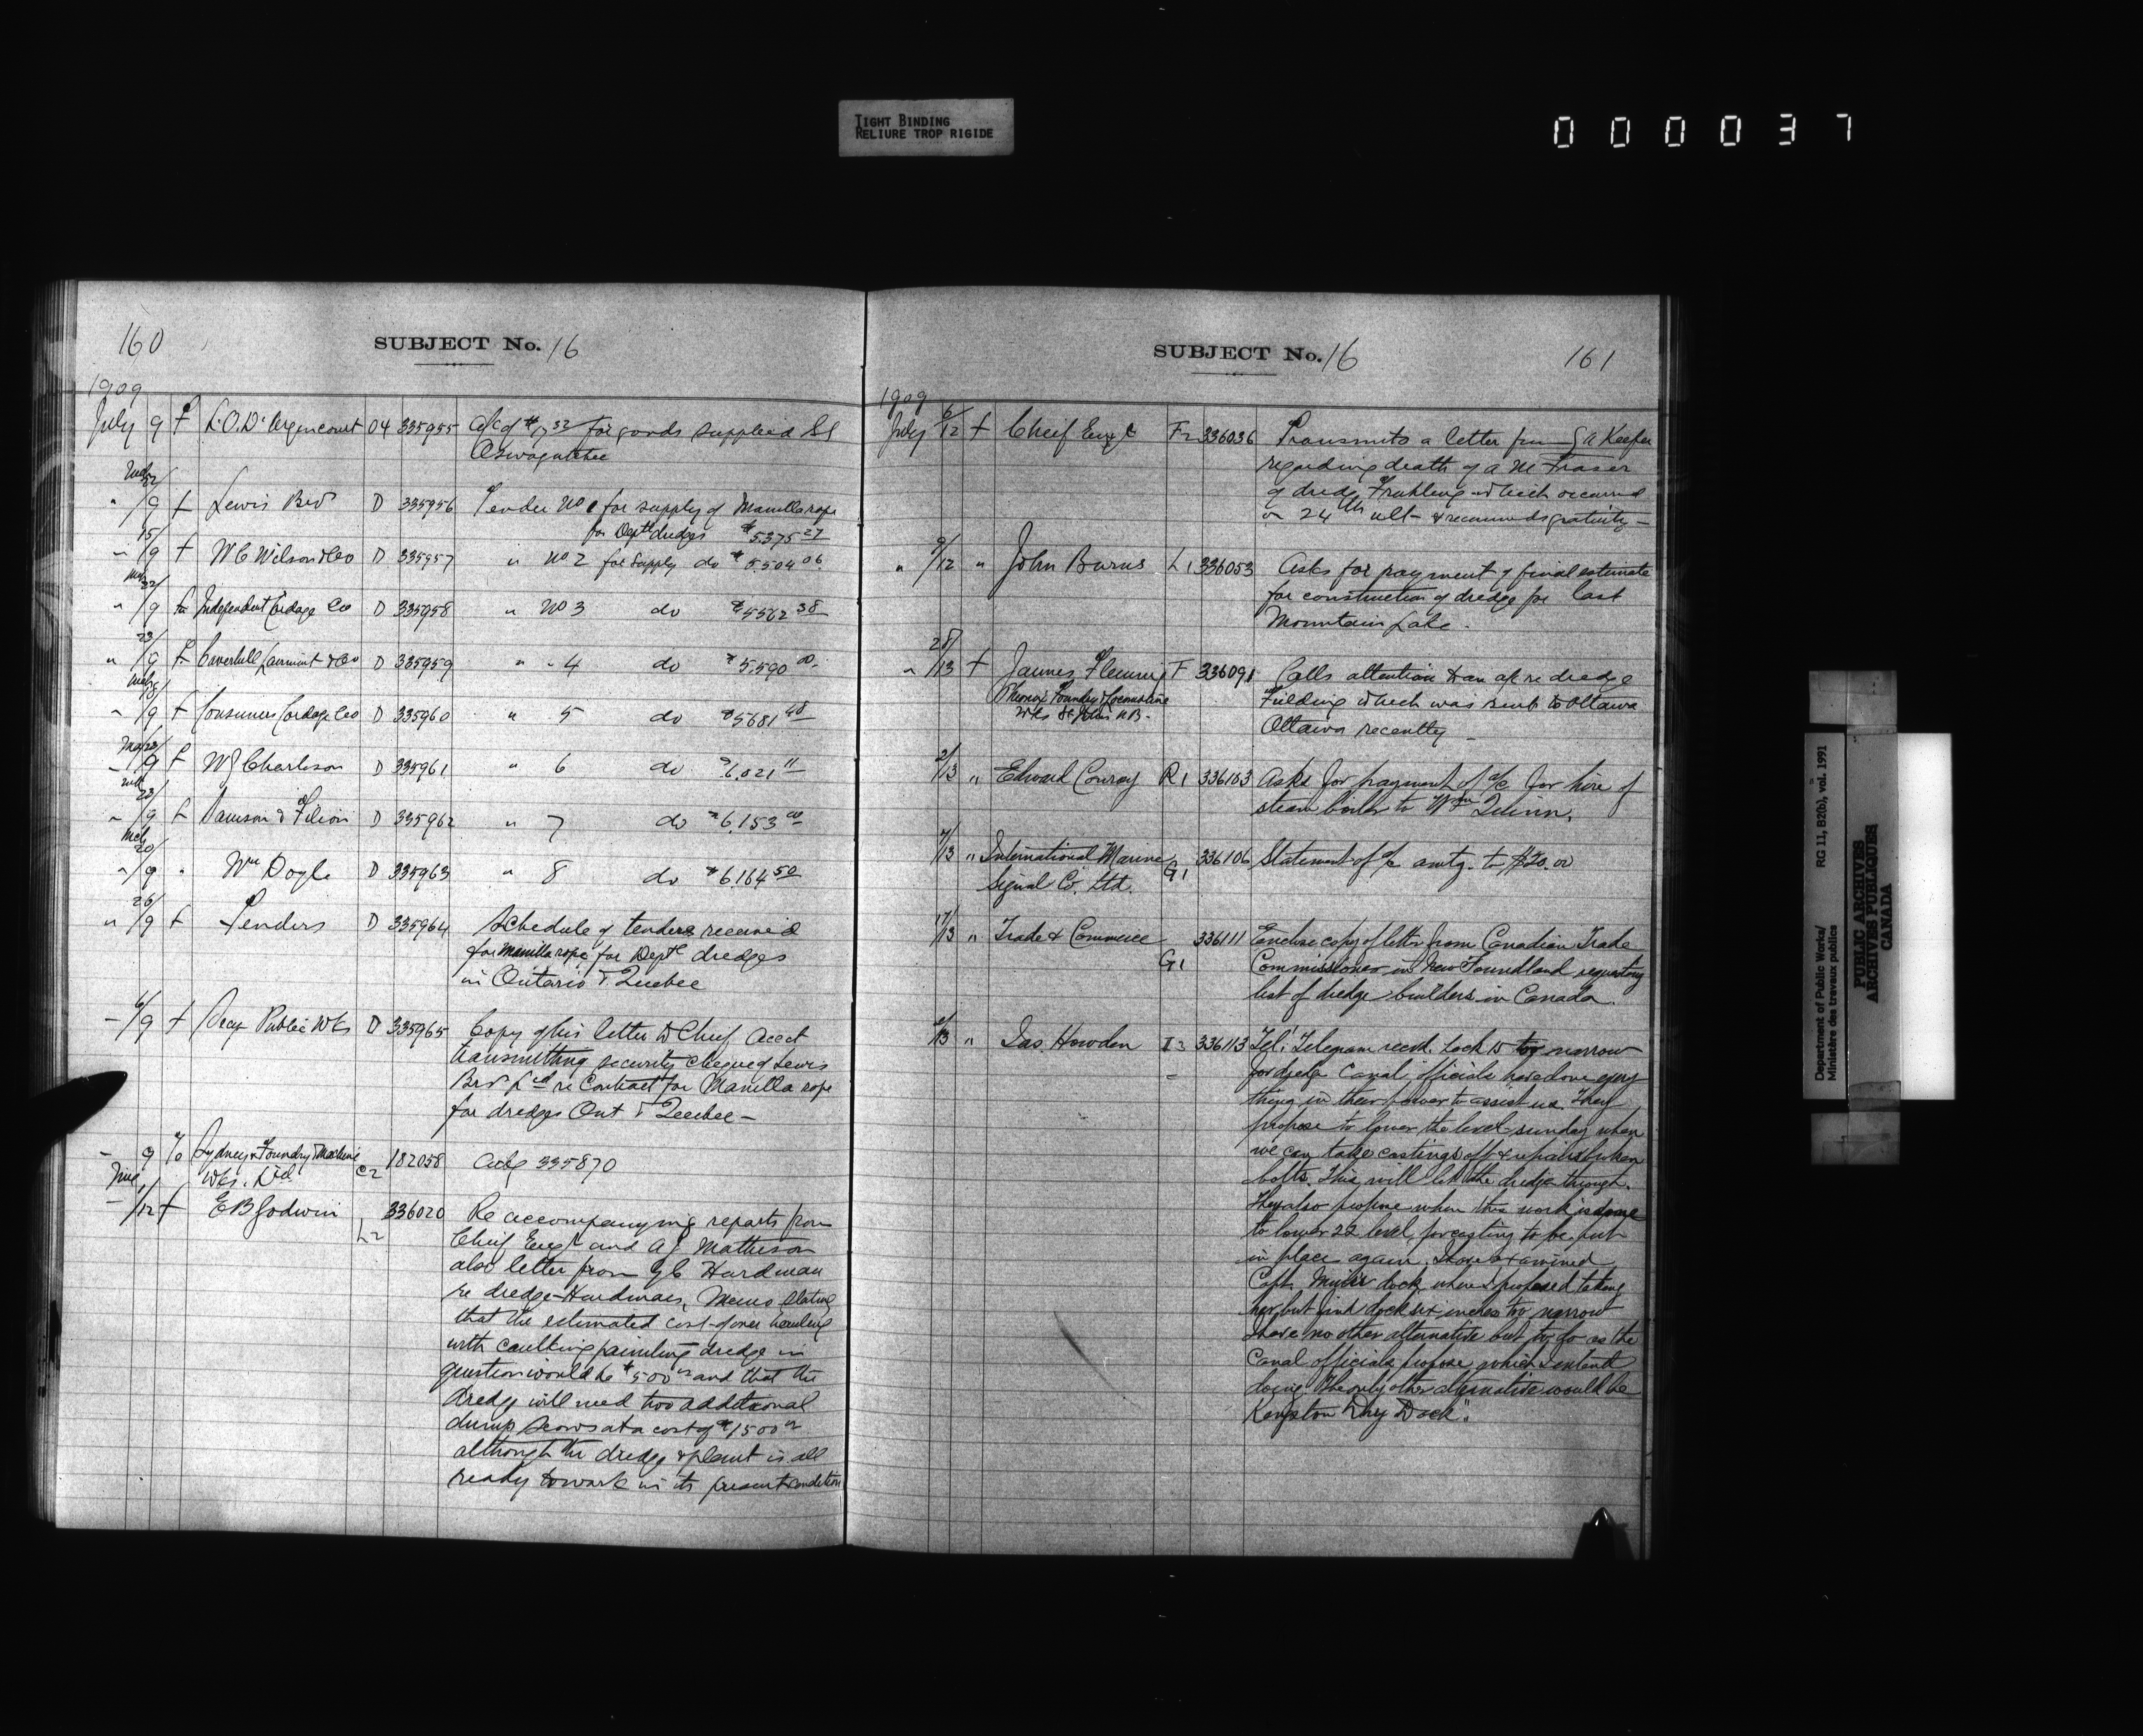 TIGHT BINDING
RELIURE TROP RIGIDE
000037
160
SUBJECT No. 16
1909
July 9 f L.O. D'Argencourt 04 335955 a/c of $7.32 for goods supplied SS
Oswagatchee
22/
" /9 f Lewis Bro D 335956 Tender No 1 for supply of Manilla rope
for Deptl dredges $5375 27
15/
" /9 f W C Wilson & Co D 335957 " No 2 for supply do $5.504 06
22/
" /9 fr Independent Cordage Co D 335958 " No 3 do $5562 38
23/
" /9 f Caverhill Learmont & Co D 335959 " " 4 do $5.590 00
" /9 f Consumers Cordage Co D 335960 " 5 do $5681 48
23/
" /9 f W J Charleson D 335961 " 6 do $6.021 11
23/
" /9 f Samson & Filion D 335962 " 7 do $6.153 00
Mch
20/
" /9 " Wm Doyle D 335963 " 8 do $6.164 50
26/
" /9 f Tenders D 335964 Schedule of tenders received
for Manilla rope for Deptl dredges
in Ontario & Quebec
6/9 f Secy Public Wks D 335965 Copy of his letter to Chief Acct
transmitting security cheque of Lewis
Bro Ltd re Contract for Manilla rope
for dredges Ont & Quebec —
9 Sydney Foundry & Machine
Wks. Ltd C2 182058 Ackg 335870
June
/12 f E B Godwin L2 336020 Re accompanying reports from
Chief Engr and A J Matheson
also letter from G C Hardman
re dredge Hardman, Memo stating
that the estimated cost of over hauling
with caulking painting dredge in
question would be $500 00 and that the
dredge will need two additional
dump scows at a cost of $1500 00
although the dredge & plant is all
ready to work in its present condition
SUBJECT No. 16
161
1909
July 6/12 f Cheif Engr F2 336036 Transmits a letter from G A Keefer
regarding death of A M Fraser
of dredge Fruhling which occurred
on 24th ult & recommends gratuity —
" 9/12 " John Burns L1 336053 Asks for payment of final estimate
for construction of dredge for last
Mountain Lake.
28/
" /13 f James Fleming F 336091 Calls attention to an a/c re dredge
Phoenix Foundry & Locomotive
Wks St John N.B. Fielding which was sent to Ottawa
Ottawa recently —
2/13 " Edward Conroy R1 336103 Asks for payment of a/c for hire of
steam boiler to Wm Quinn.
7/13 " International Marine
Signal Co. Ltd. G1 336106 Statement of a/c amtg. to $20.00
17/13 " Trade & Commerce G1 336111 Enclose copy of letter from Canadian Trade
Commissioner in New Foundland requesting
list of dredge builders in Canada.
/13 " Jas. Howden I3 336113 Tel: "Telegram recd. Lock 15 too narrow
for dredge Canal officials have done every
thing in their power to assist us. They
propose to lower the level sunday when
we can take castings off & repair broken
bolts. This will let the dredge through.
They also propose when this work is done
to lower 22 level, for casting to be put
in place again. I have examined
Capt. dock where I proposed taking
her but find dock six inches too narrow
I have no other alternative but to do as the
Canal officials propose which I intend
doing. The only other alternative would be
Kingston Dry Dock".
Department of Public Works/
Ministère des travaux publics
RG 11, B2(b), vol. 1991
PUBLIC ARCHIVES
ARCHIVES PUBLIQUES
CANADA